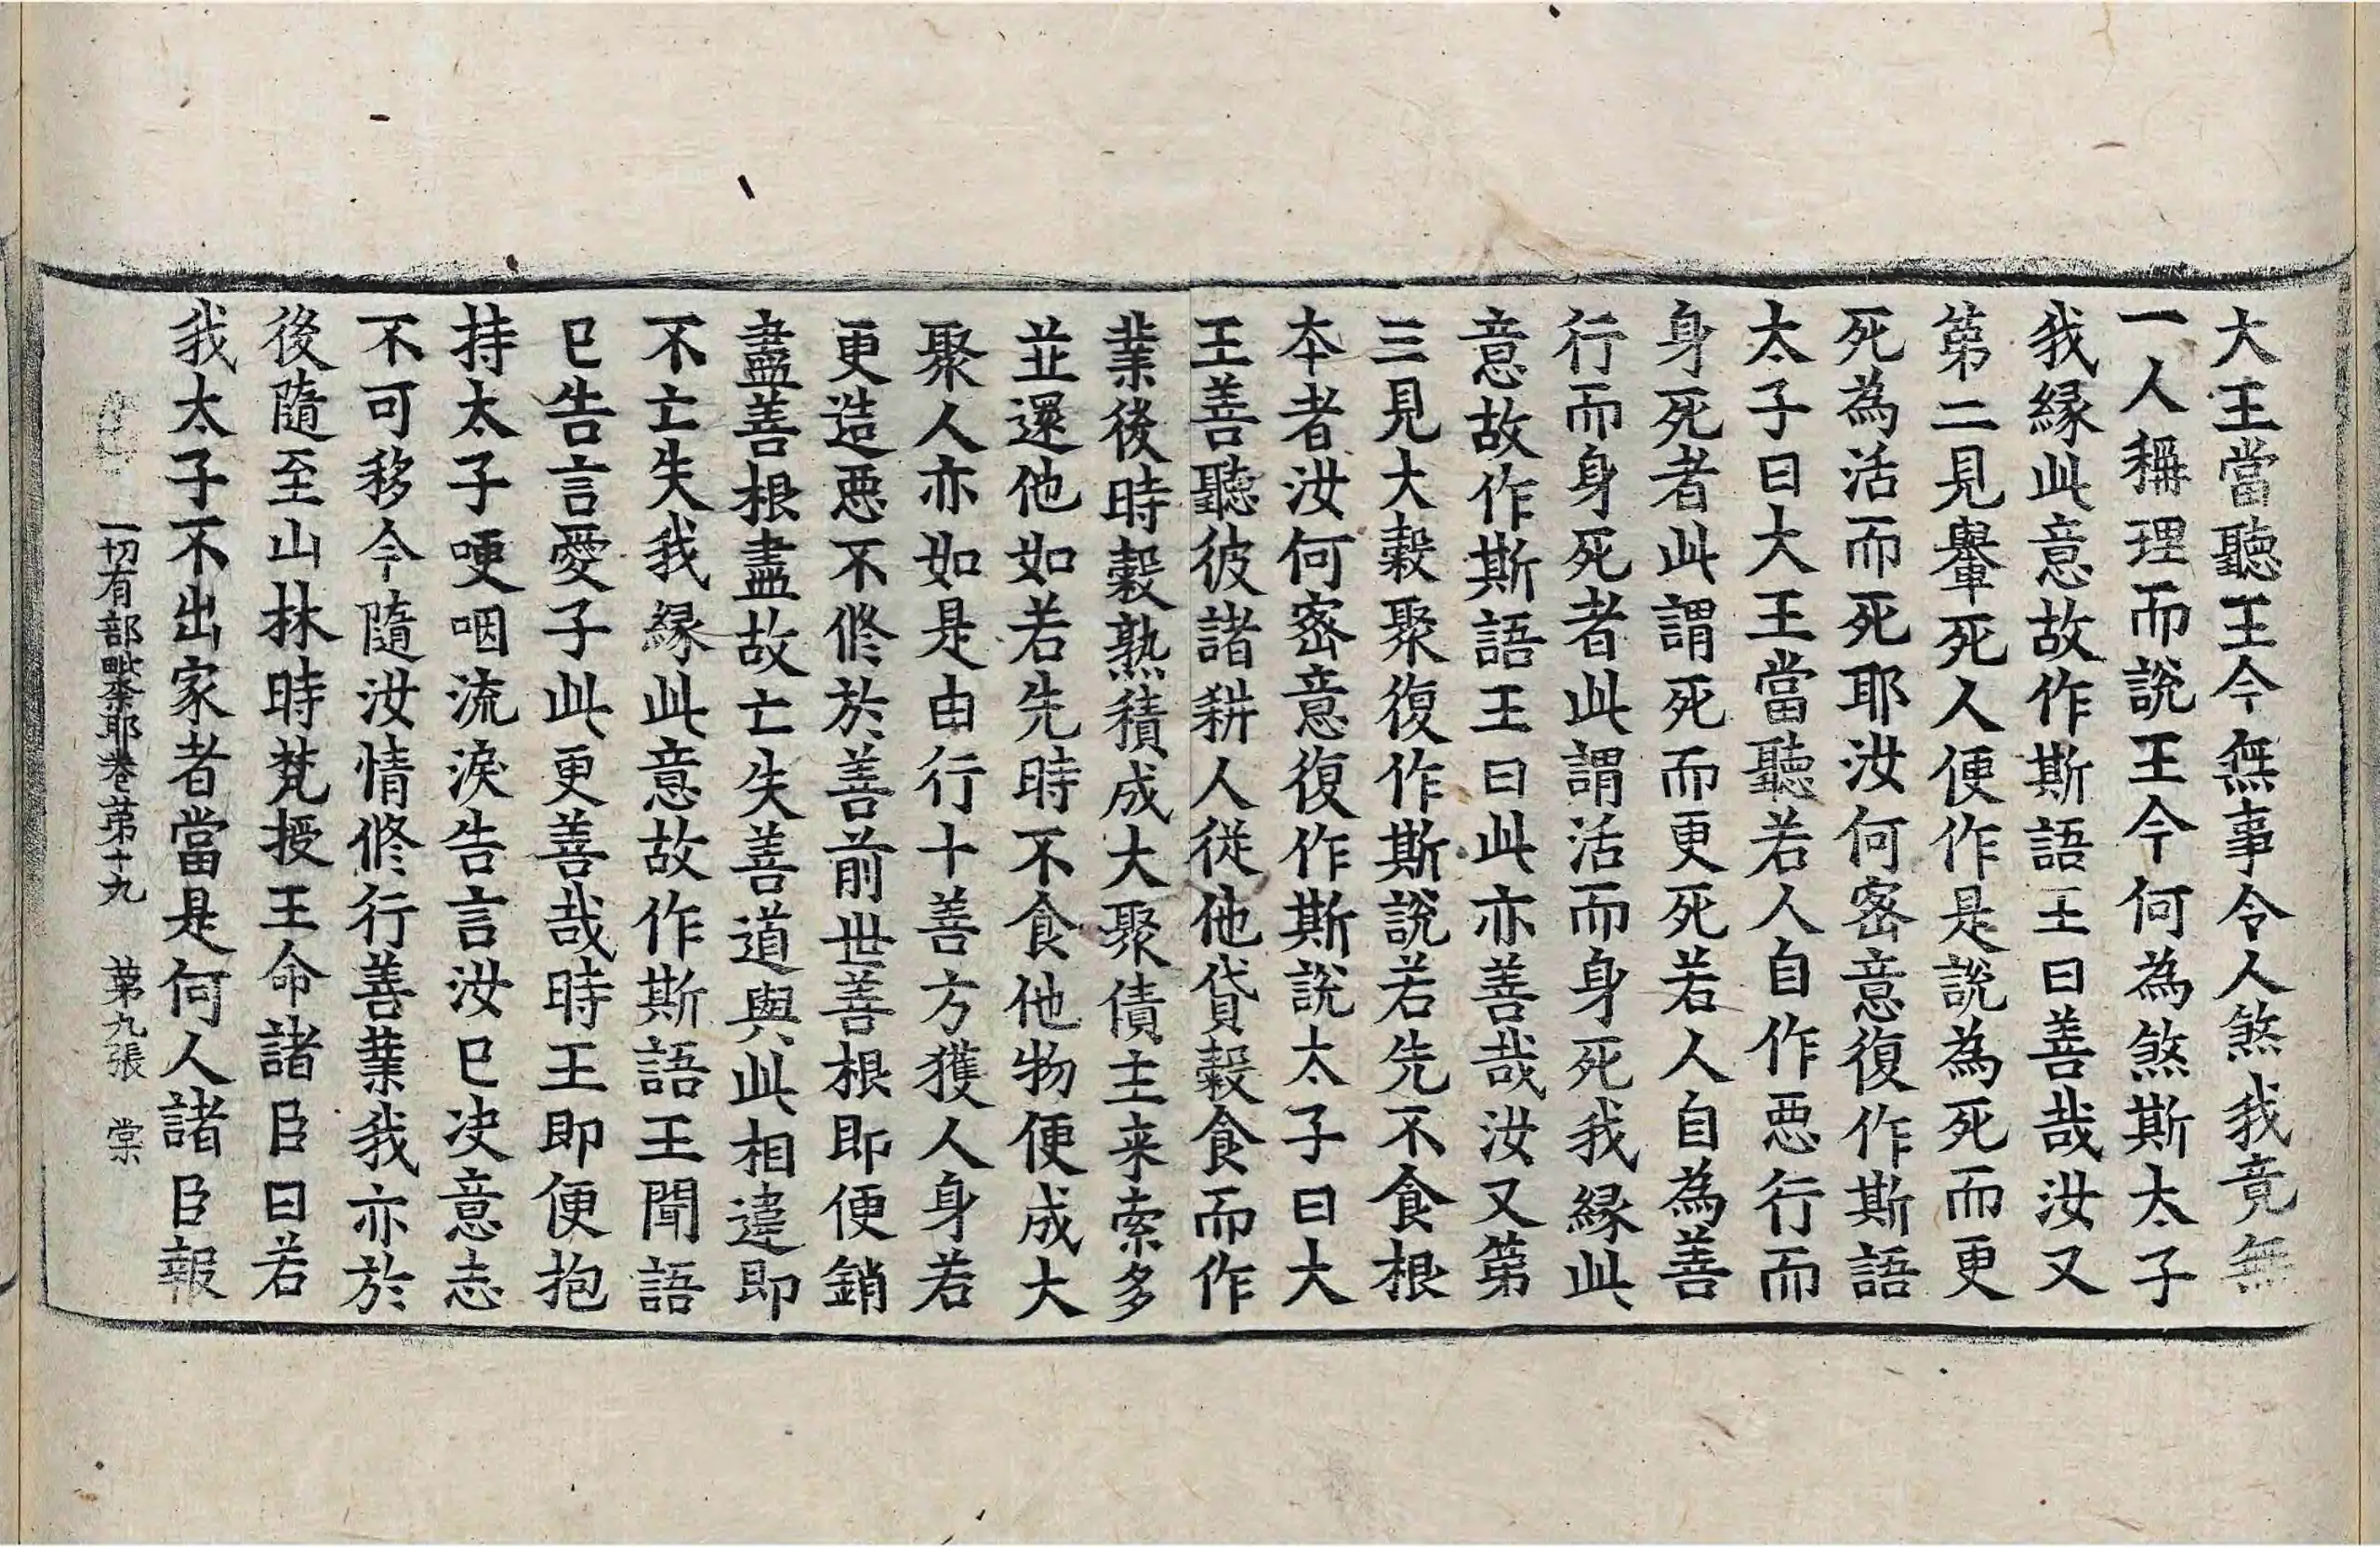 大王當聽王今無事令人煞我竟無
一人稱理而說王今何為煞斯太子
我緣此意故作斯語王曰善哉汝又
第二見轝死人便作是說為死而更
死為活而死耶汝何密意復作斯語
太子曰大王當聽若人自作惡行而
身死者此謂死而更死若人自為善
行而身死者此謂活而身死我緣此
意故作斯語王曰此亦善哉汝又第
三見大穀聚復作斯說若先不食根
本者汝何密意復作斯說太子曰大
王善聽彼諸耕人從他貸穀食而作
業後時穀熟積成大聚債主来索多
並還他如若先時不食他物便成大
聚人亦如是由行十善方獲人身若
更造惡不修於善前世善根即便銷
盡善根盡故亡失善道與此相違即
不亡失我緣此意故作斯語王聞語
已告言愛子此更善哉時王即便抱
持太子哽咽流淚告言汝已決意志
不可移今隨汝情修行善業我亦於
後隨至山林時梵授王命諸臣曰若
我太子不出家者當是何人諸臣報
一切有部毗奈耶卷第十九 第九張 棠